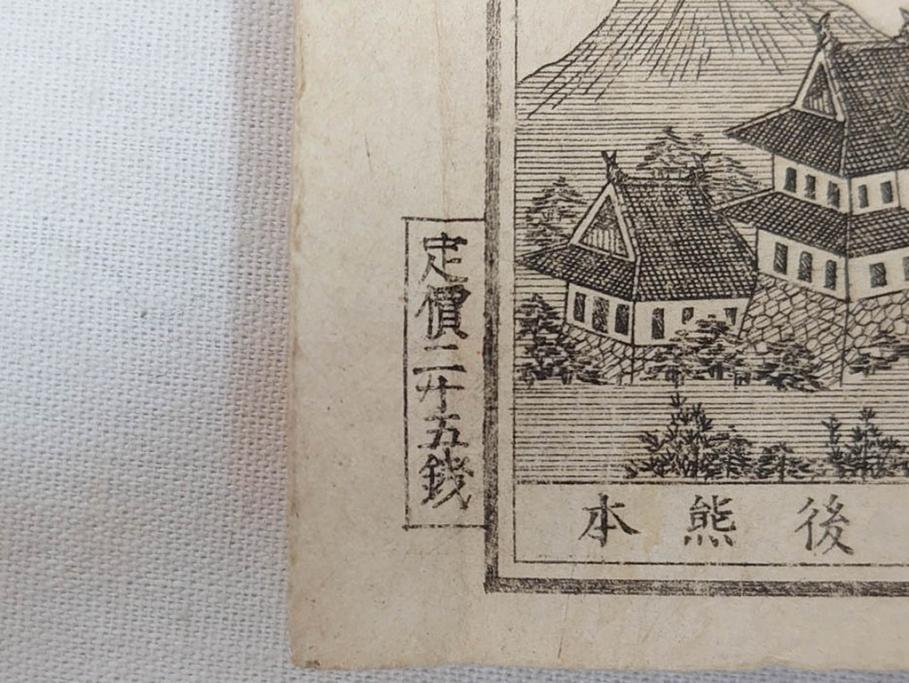 定價二十五錢
後熊本